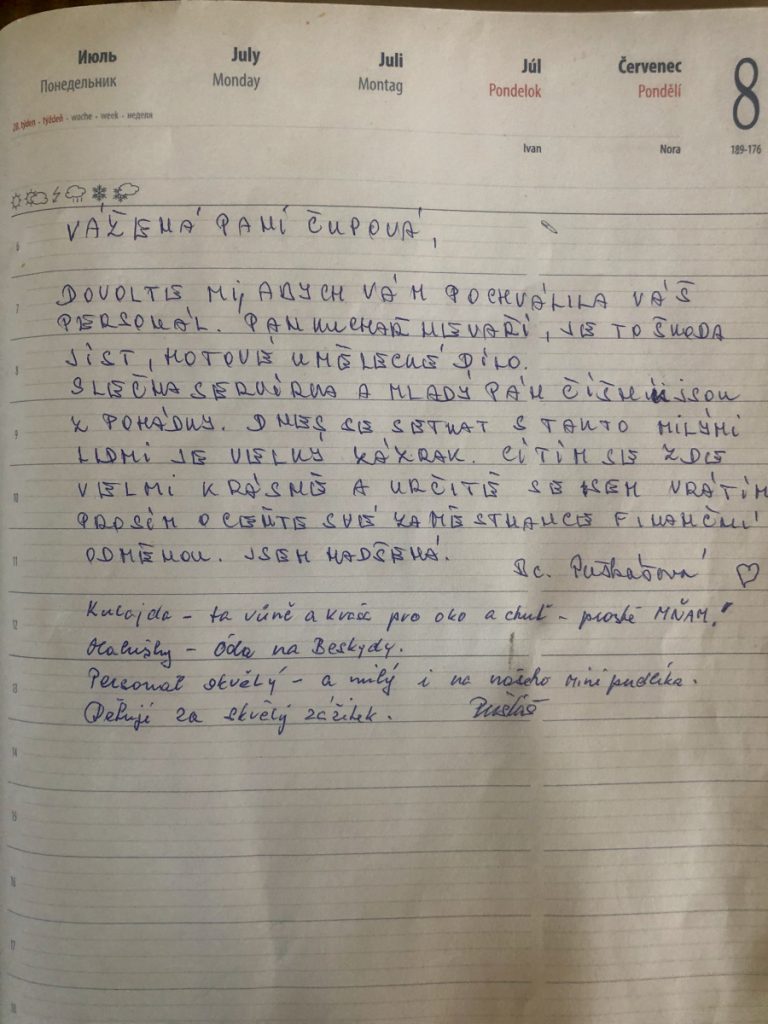 Июль July Juli Júl Červenec 8
Понедельник Monday Montag Pondelok Pondělí
28. týden - týždeň - woche - week - неделя
Ivan Nora 189-176
6 VÁŽENÁ PANÍ ČUPOVÁ,
7 DOVOLTE MI, ABYCH VÁM POCHVÁLILA VÁŠ
PERSONÁL. PAN KUCHAŘ NEVAŘÍ, JE TO ŠKODA
8 JÍST, HOTOVÉ UMĚLECKÉ DÍLO.
SLEČNA SERVÍRKA A MLADÝ PÁN ČÍŠNÍK JSOU
9 Z POHÁDKY. DNES SE SETKAT S TAKTO MILÝMI
LIDMI JE VELKÝ ZÁZRAK. CÍTÍM SE ZDE
10 VELMI KRÁSNĚ A URČITĚ SE SEM VRÁTÍM
PROSÍM OCEŇTE SVÉ ZAMĚSTNANCE FINANČNÍ
11 ODMĚNOU. JSEM NADŠENÁ.
Bc. Puškášová
12 Kulajda - ta vůně a krása pro oko a chuť - prostě MŇAM!
Halušky - Óda na Beskydy.
13 Personál skvělý - a milý i na našeho mini pudlíka.
Děkuji za skvělý zážitek. Puškáš
14
15
16
17
18